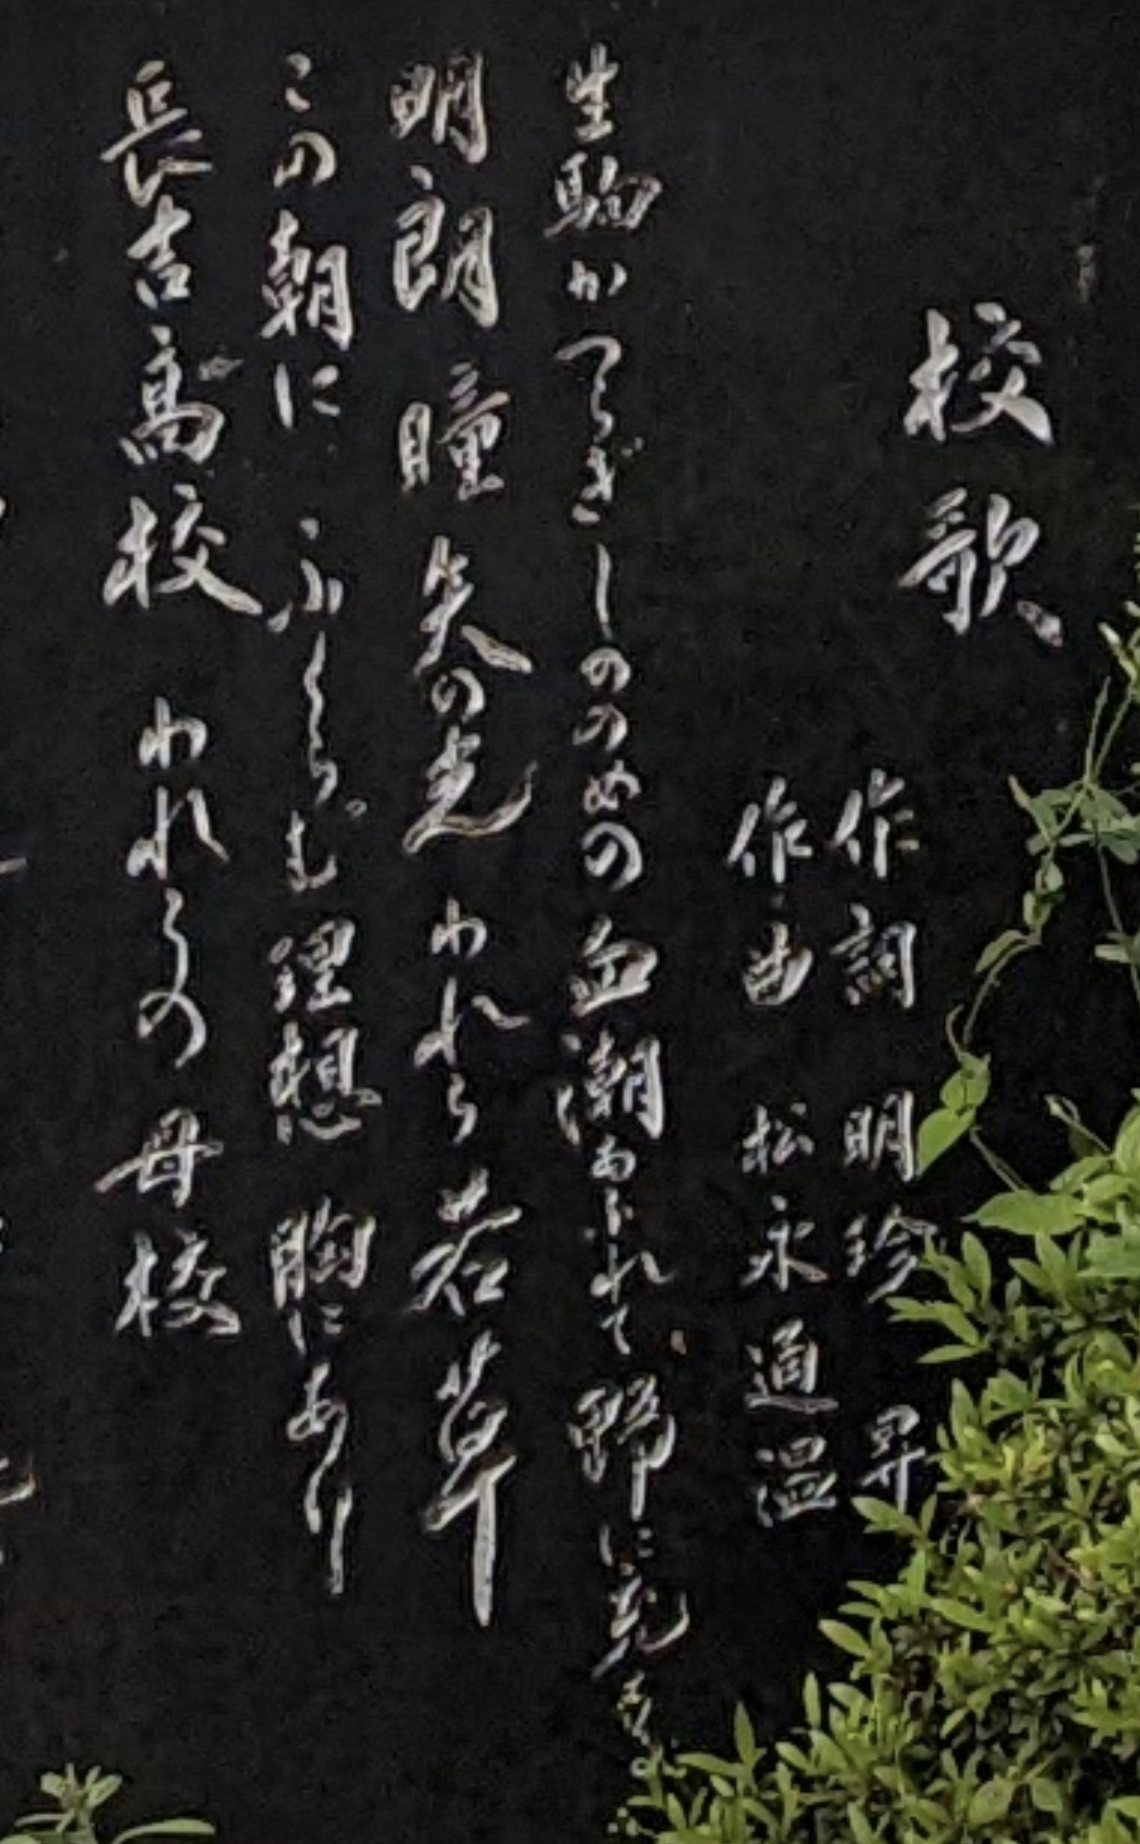 校歌
作詞 明珍 昇
作曲 松永通温
生駒かつらぎしののめの 血潮あふれて 野に充き
明朗 瞳 矢の光 われら 若草
この朝に ふくらむ 理想 胸にあり
長吉高校 われらの 母校